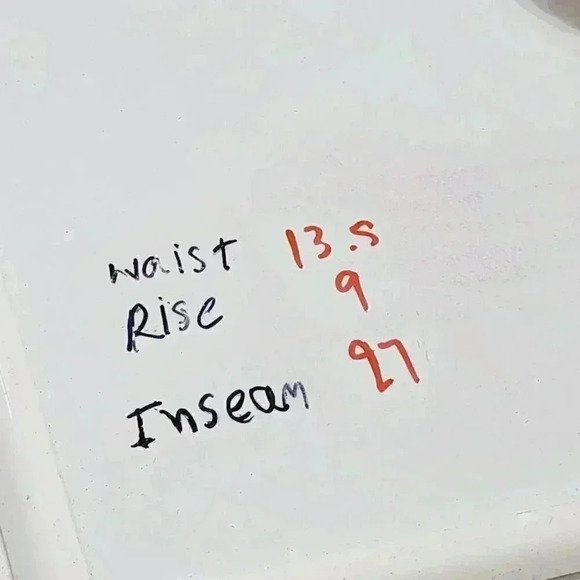 waist 13.5
Rise 9
Inseam 27